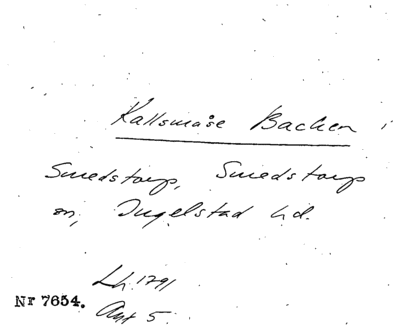 Kallsmåse Backen
Smedstorp, Smedstorp
sn, Ingelstad hd.
Lh 1291
Akt 5.
Nr 7654.